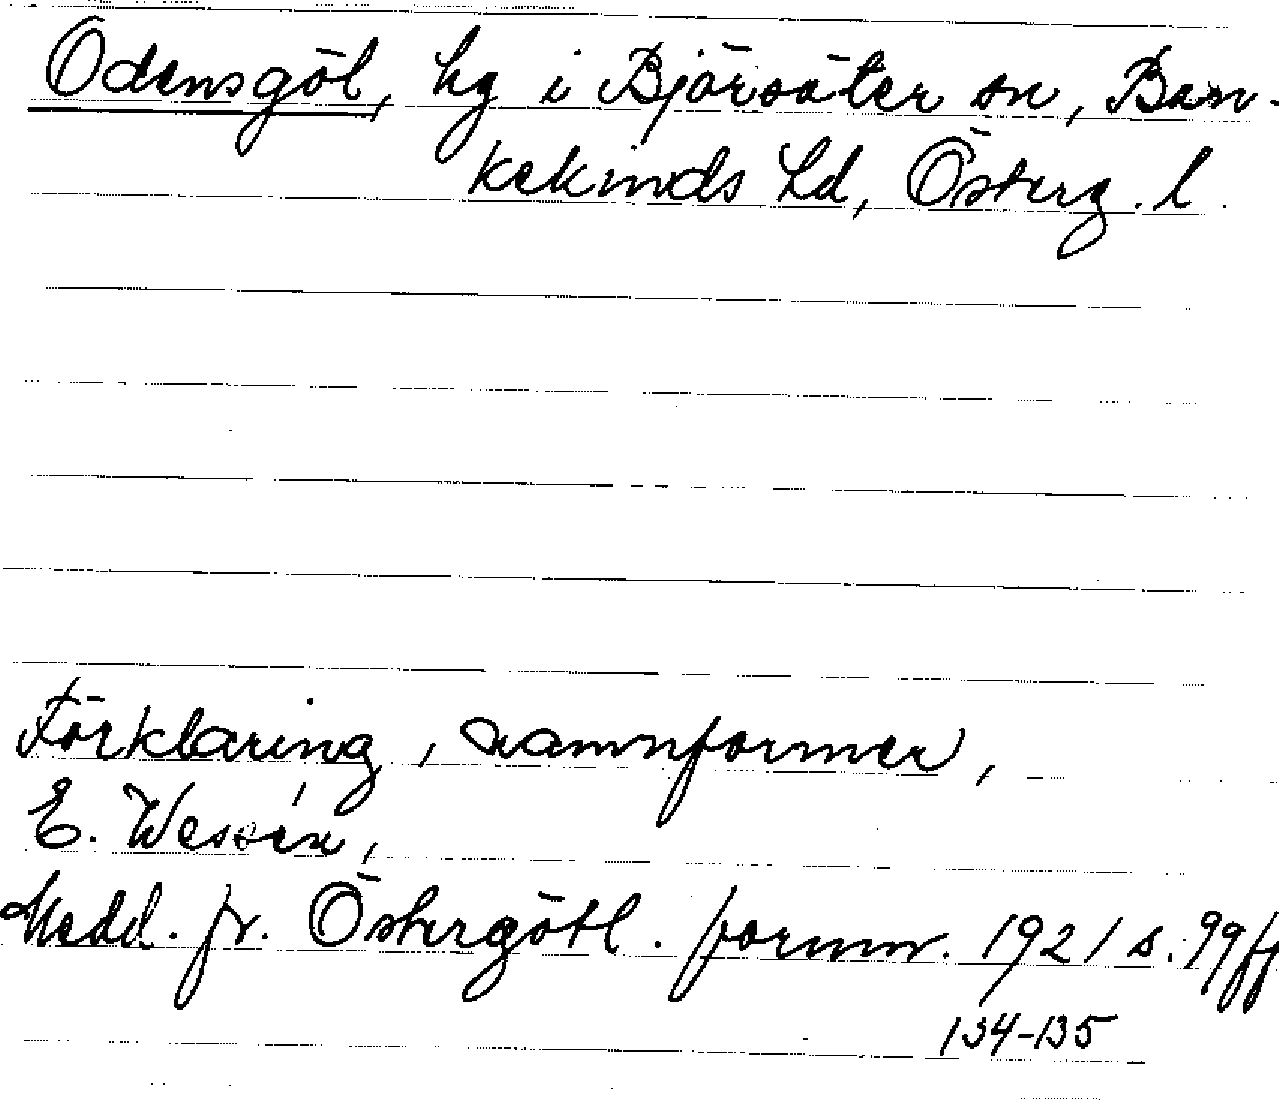 Odensgöl, hg i Björsäter sn, Ban-
kekinds hd, Österg. l.
Förklaring, namnformer,
E. Wessén,
Medd. fr. Östergötl. fornm. 1921 s. 99 ff
134-135